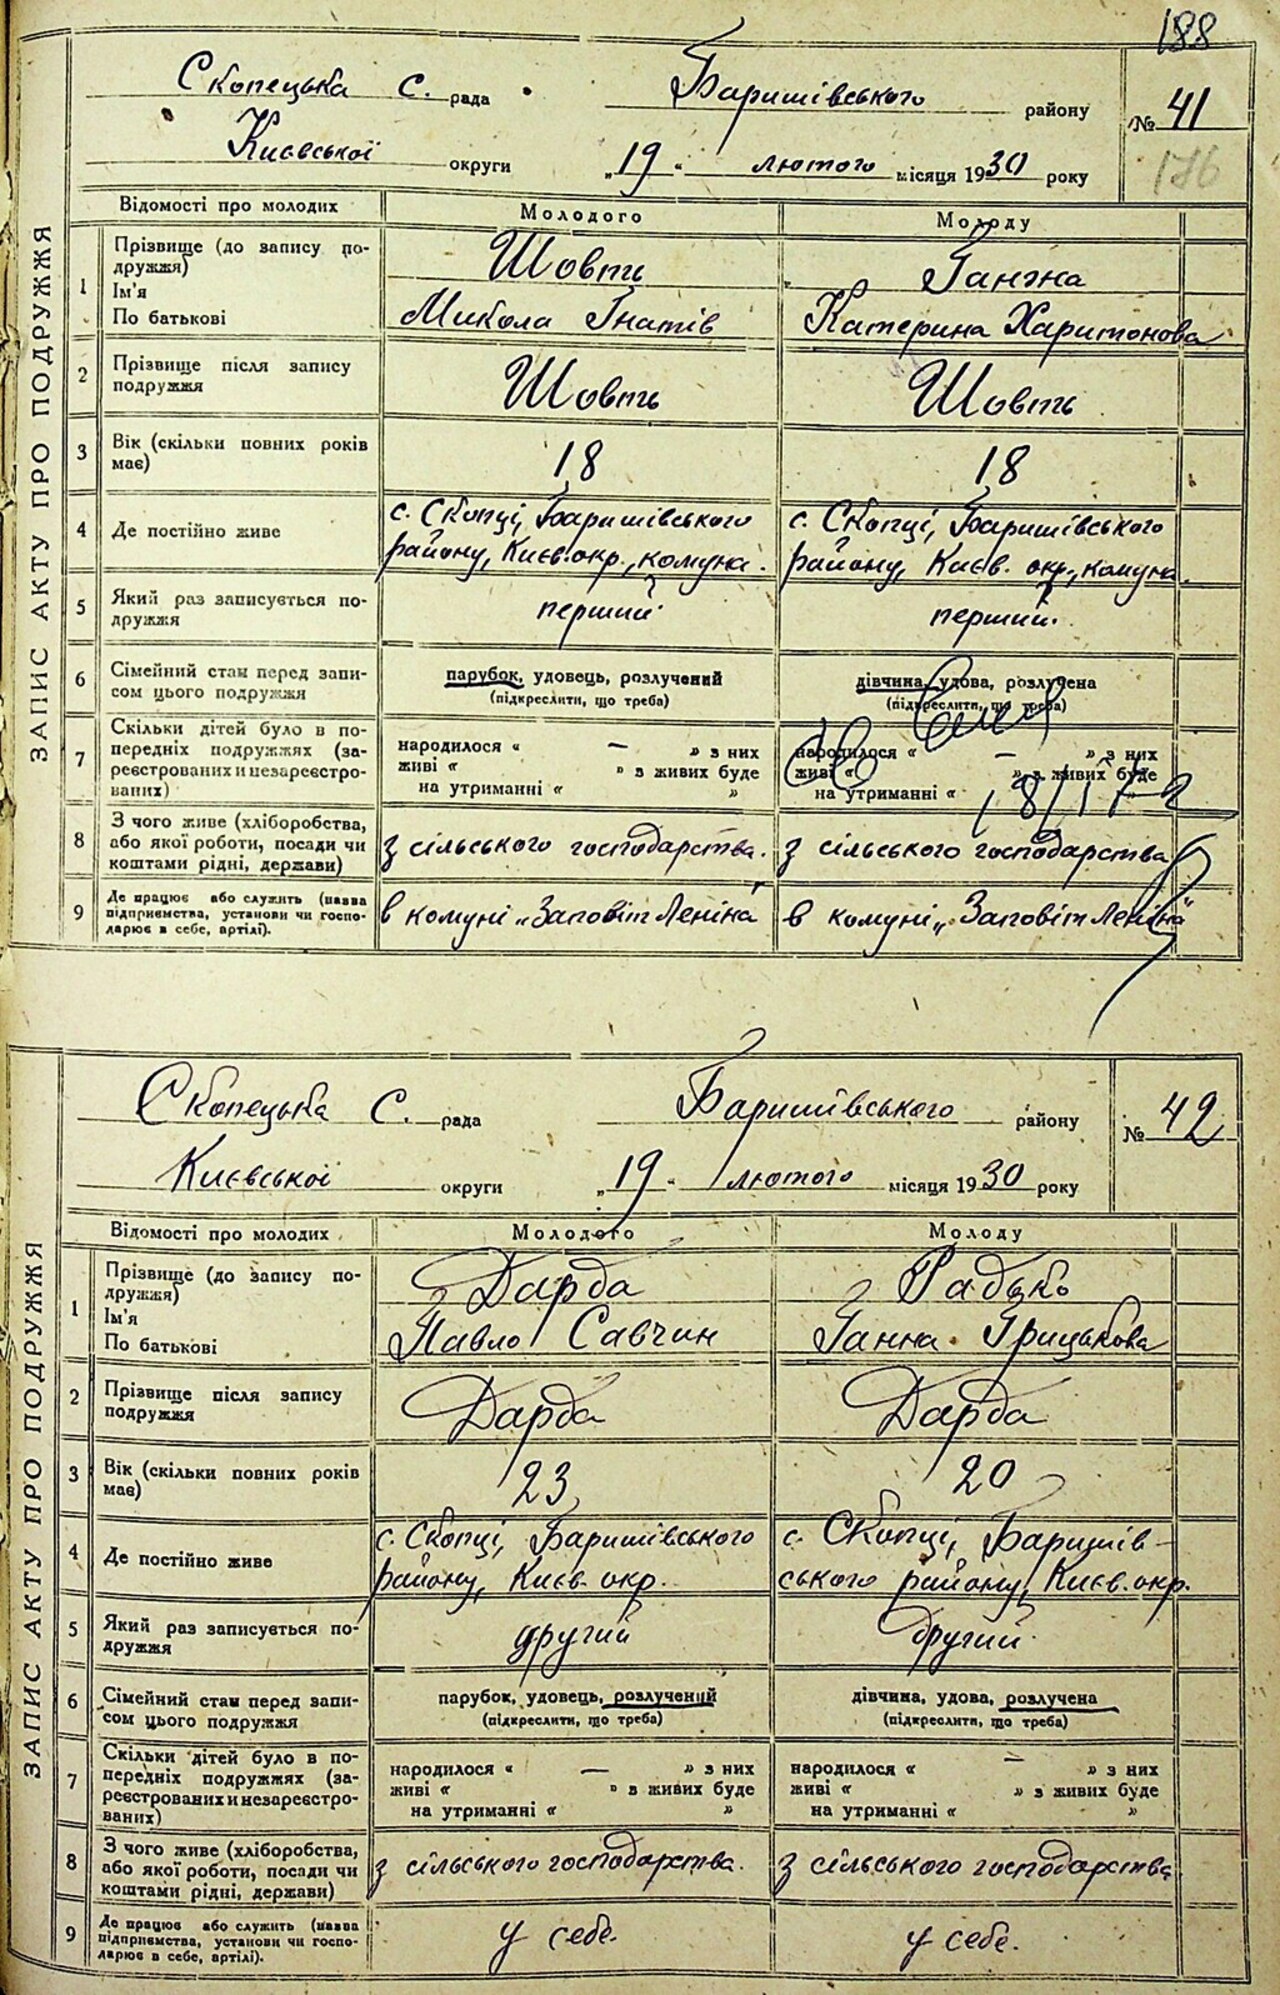 188
Скопецька С. рада Баришівського району № 41
Києвської округи „19“ лютого місяця 1930 року
176
ЗАПИС АКТУ ПРО ПОДРУЖЖЯ
Відомості про молодих Молодого Молоду
1 Прізвище (до запису по-
дружжя) Шовть
Ім'я
По батькові Микола Гнатів Катерина Харитонова
2 Прізвище після запису
подружжя Шовть Шовть
3 Вік (скільки повних років
має) 18 18
4 Де постійно живе с. Скопці, Баришівського с. Скопці, Баришівського
району, Києв. окр., комуна. району, Києв. окр., комуна
5 Який раз записується по-
дружжя перший перший.
6 Сімейний стан перед запи- парубок, удовець, розлучений дівчина, удова, розлучена
сом цього подружжя (підкреслити, що треба) (підкреслити, що треба)
7 Скільки дітей було в по-
передніх подружжях (за-
реєстрованих и незареєстро-
ваних)
народилося « — » з них народилося « — » з них
живі « » з живих буде живі « » з живих буде
на утриманні « » на утриманні «
8 З чого живе (хліборобства,
або якої роботи, посади чи
коштами рідні, держави) з сільського господарства. з сільського господарства
9 Де працює або служить (назва
підприємства, установи чи госпо-
дарює в себе, артілі). в комуні „Заповіт Леніна“ в комуні „Заповіт Леніна“
Скопецька С. рада Баришівського району № 42
Києвської округи „19“ лютого місяця 1930 року
ЗАПИС АКТУ ПРО ПОДРУЖЖЯ
Відомості про молодих Молодого Молоду
1 Прізвище (до запису по-
дружжя) Дарда Радько
Ім'я
По батькові Павло Савчин Ганна Грицькова
2 Прізвище після запису
подружжя Дарда Дарда
3 Вік (скільки повних років
має) 23 20
4 Де постійно живе с. Скопці, Баришівського с. Скопці, Баришів-
району, Києв. окр. ського району, Києв. окр.
5 Який раз записується по-
дружжя другий другий.
6 Сімейний стан перед запи- парубок, удовець, розлучений дівчина, удова, розлучена
сом цього подружжя (підкреслити, що треба) (підкреслити, що треба)
7 Скільки дітей було в по-
передніх подружжях (за-
реєстрованих и незареєстро-
ваних)
народилося « — » з них народилося « — » з них
живі « » в живих буде живі « » з живих буде
на утриманні « » на утриманні « »
8 З чого живе (хліборобства,
або якої роботи, посади чи
коштами рідні, держави) з сільського господарства. з сільського господарства
9 Де працює або служить (назва
підприємства, установи чи госпо-
дарює в себе, артілі). у себе. у себе.